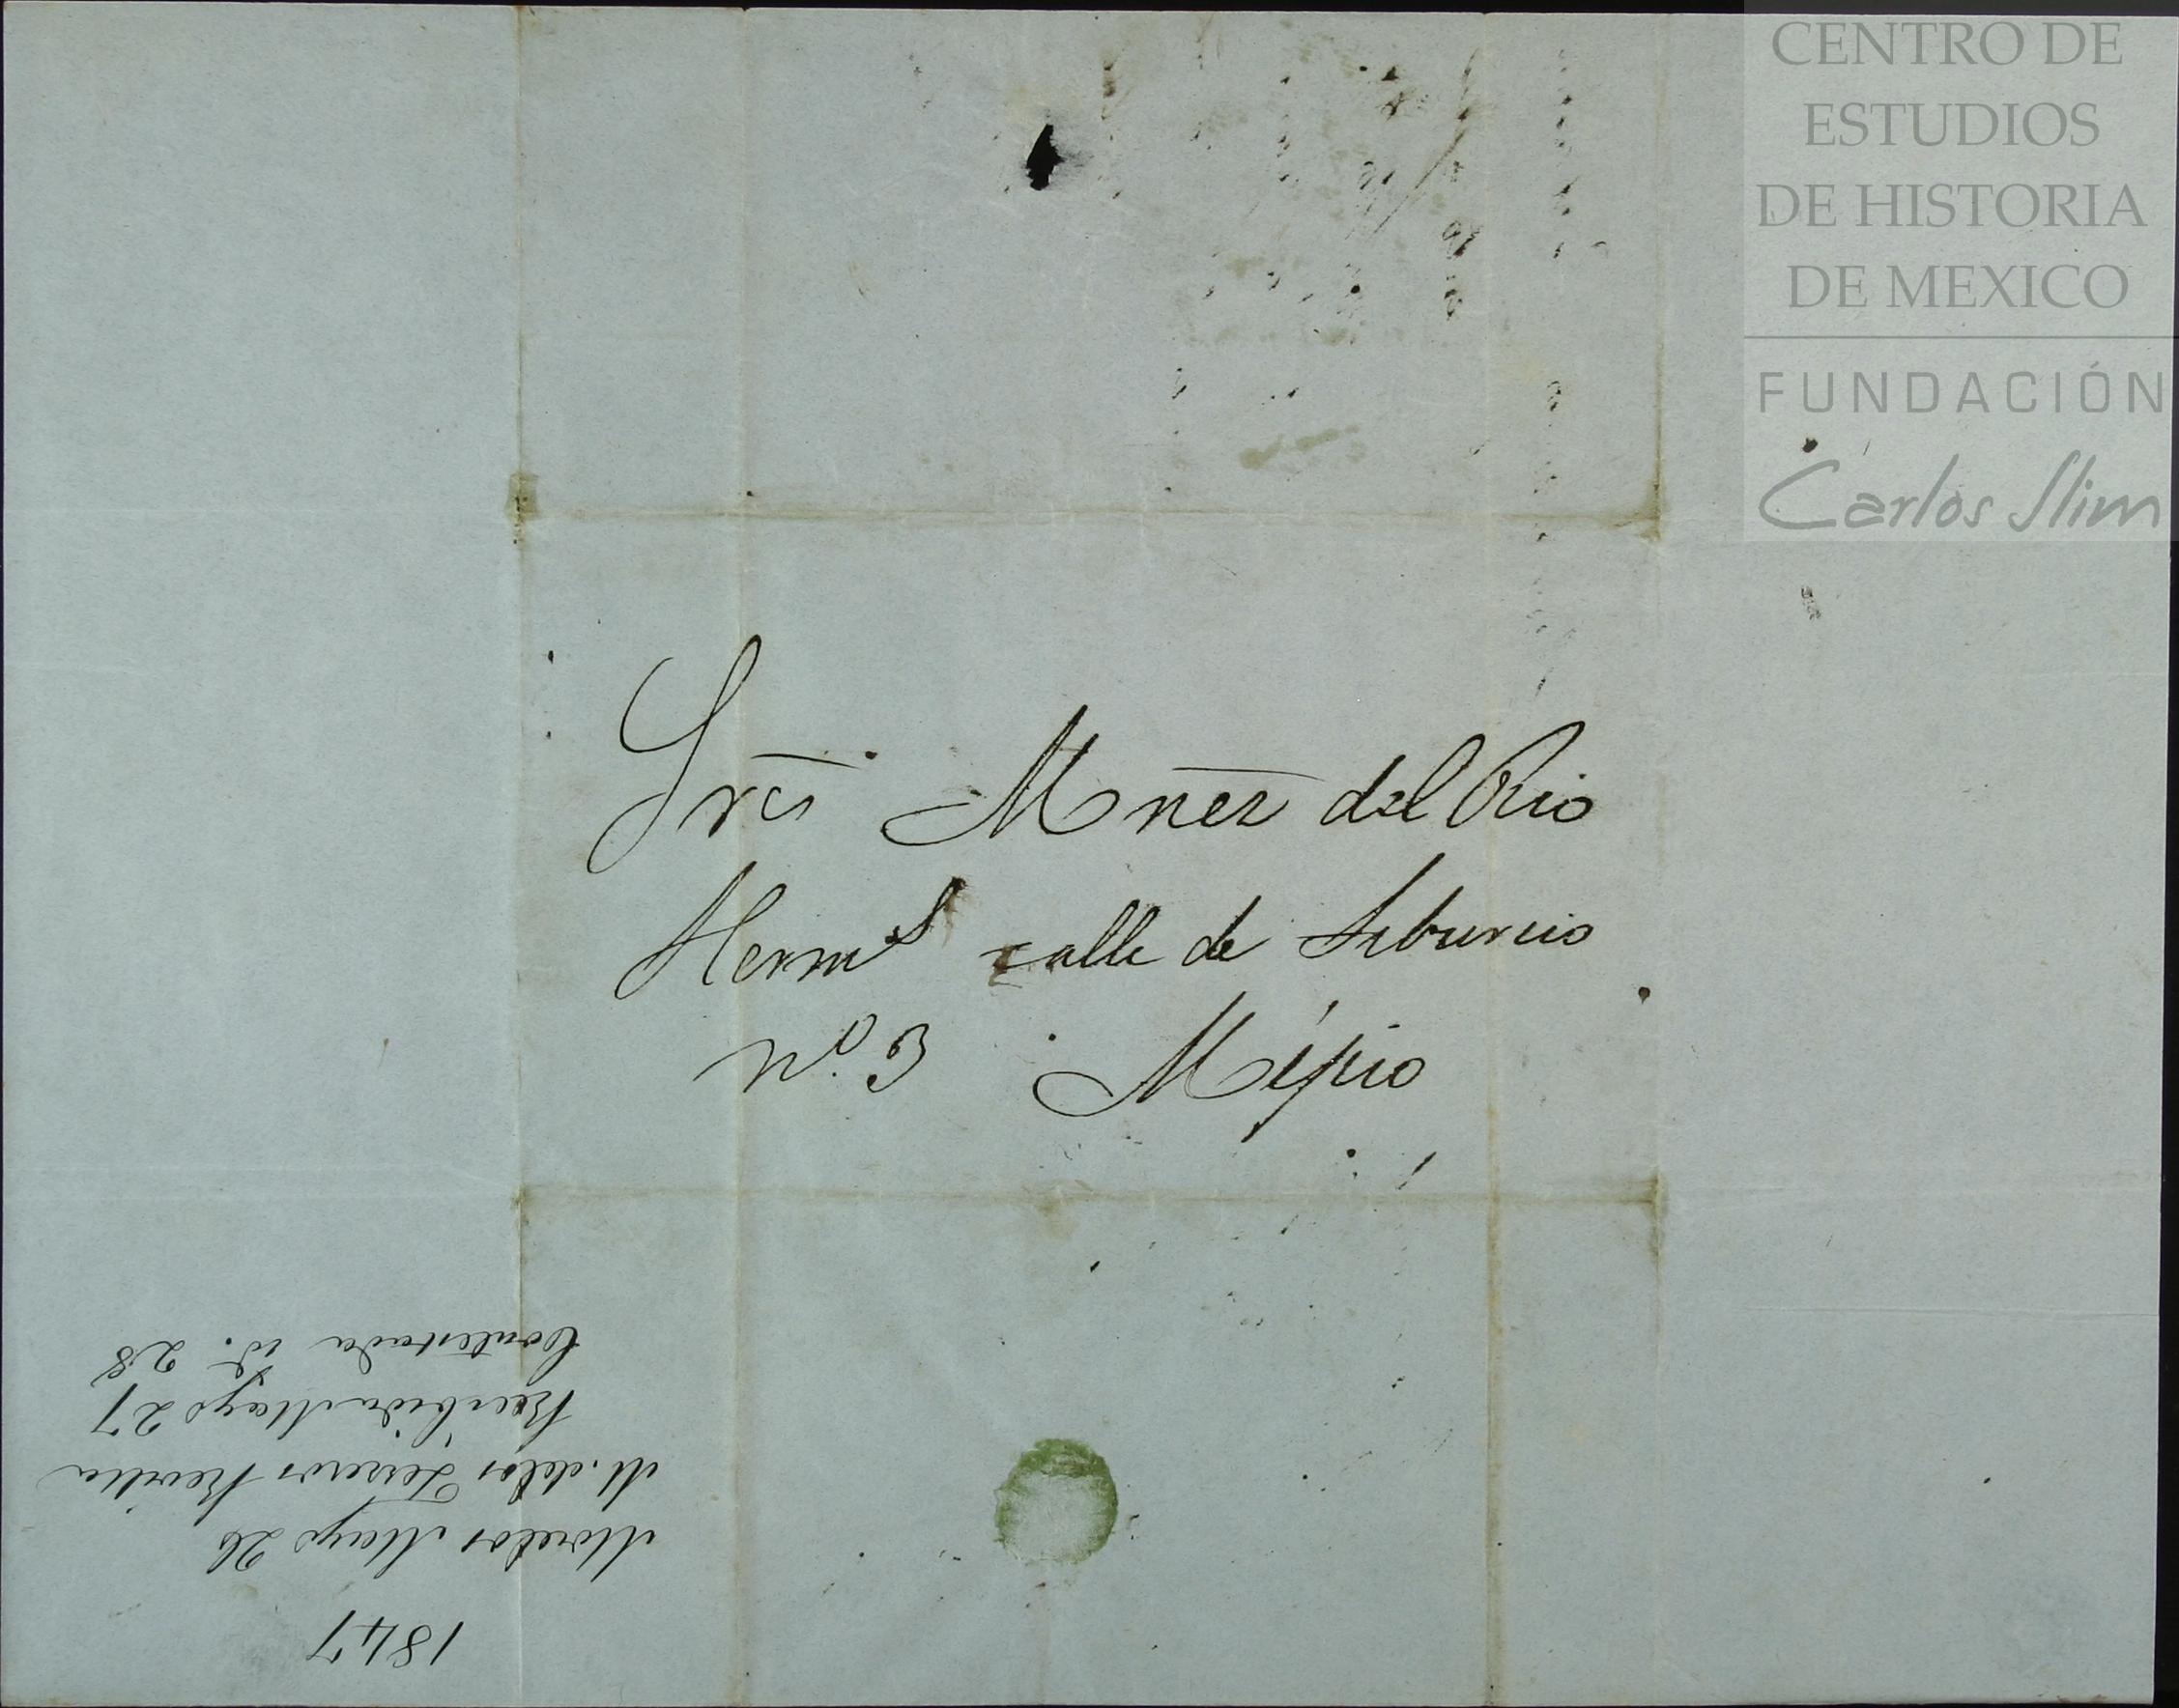 CENTRO DE
ESTUDIOS
DE HISTORIA
DE MEXICO
FUNDACIÓN
Carlos Slim
Sres Mñez del Rio
Hermˢ calle de Tiburcio
nº. 3 Méjico
1847
Morelos Mayo 26
M. delos Terreros Revilla
Recibida Mayo 27
Contestada id. 28